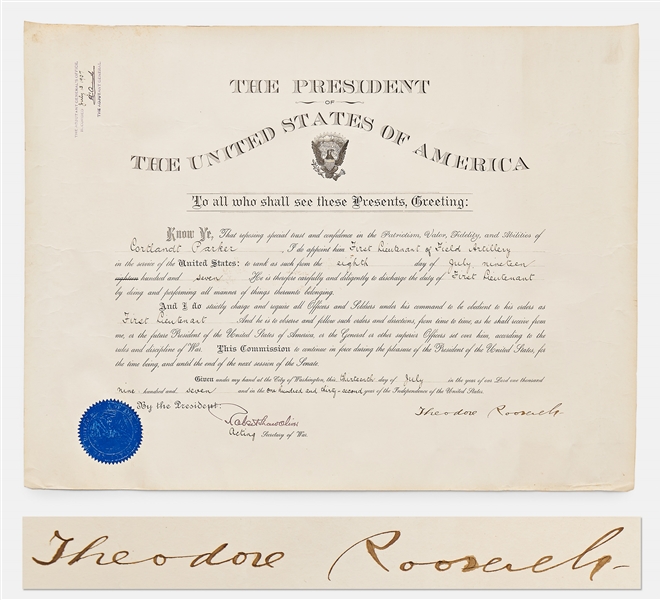 THE ADJUTANT GENERAL'S OFFICE,
July 13 1907
THE PRESIDENT
OF
THE UNITED STATES OF AMERICA
To all who shall see these Presents, Greeting:
Know Ye, That reposing special trust and confidence in the Patriotism, Valor, Fidelity, and Abilities of
Cortlandt Parker, I do appoint him First Lieutenant of Field Artillery
in the service of the United States: to rank as such from the eighth day of July nineteen
eighteen hundred and seven. He is therefore carefully and diligently to discharge the duty of First Lieutenant
by doing and performing all manner of things thereunto belonging.
And I do strictly charge and require all Officers and Soldiers under his command to be obedient to his orders as
First Lieutenant. And he is to observe and follow such orders and directions, from time to time, as he shall receive from
me, or the future President of the United States of America, or the General or other superior Officers set over him, according to the
rules and discipline of War. This Commission to continue in force during the pleasure of the President of the United States, for
the time being, and until the end of the next session of the Senate.
Given under my hand at the City of Washington, this thirteenth day of July in the year of our Lord one thousand
nine hundred and seven and in the one hundred and thirty-second year of the Independence of the United States.
By the President:
Theodore Roosevelt
Acting Secretary of War.
Theodore Roosevelt